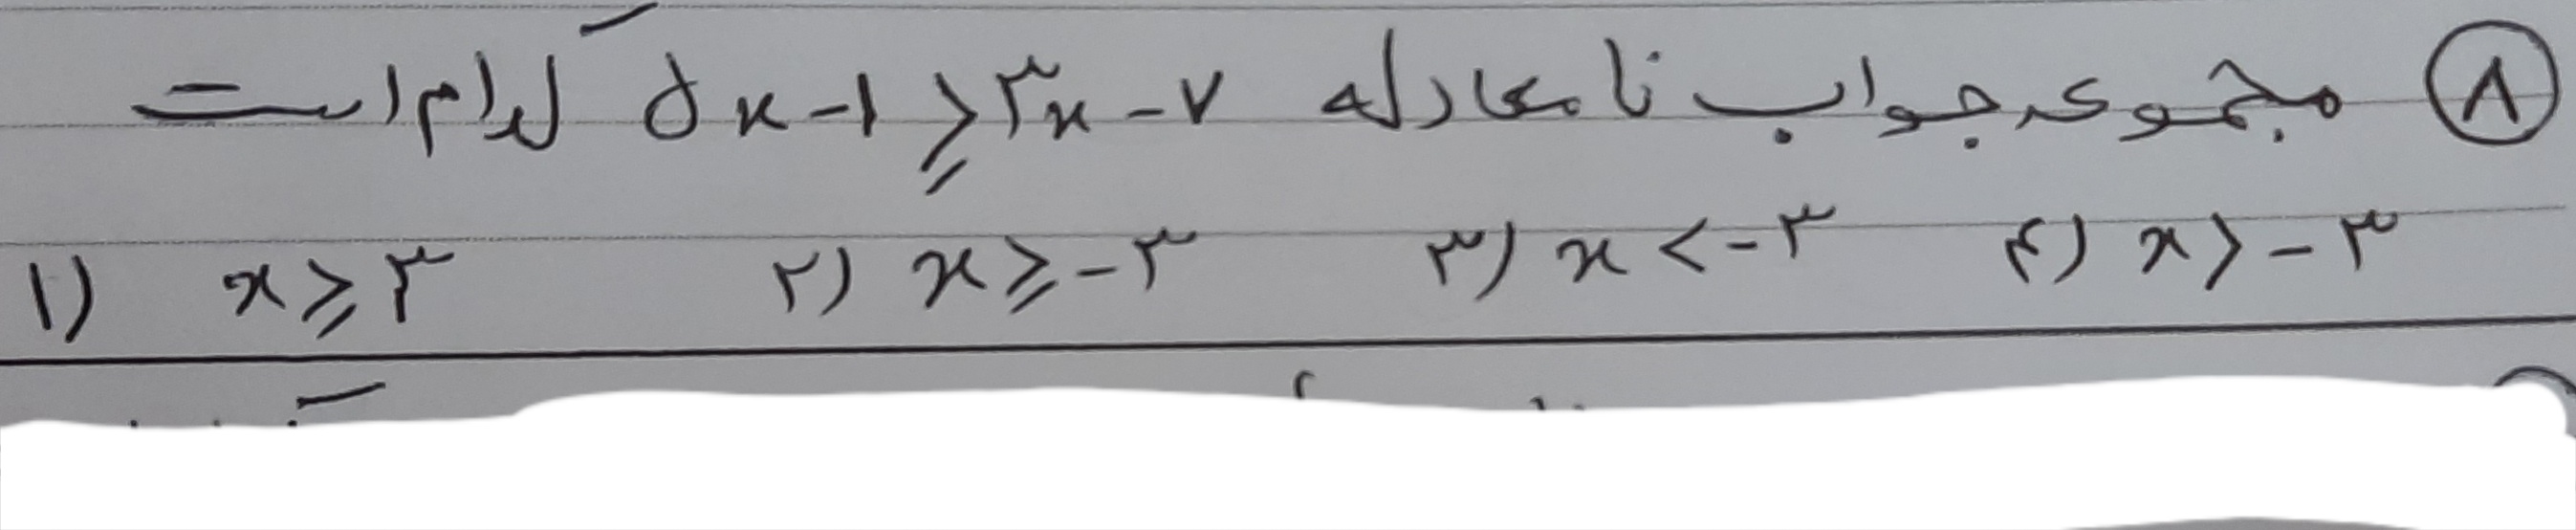 ۸ مجموعه جواب نا معادله ۵x-۱ ≥ ۳x-۷ کدام است
۱) x ≥ ۳ ۲) x ≥ -۳ ۳) x < -۳ ۴) x > -۳